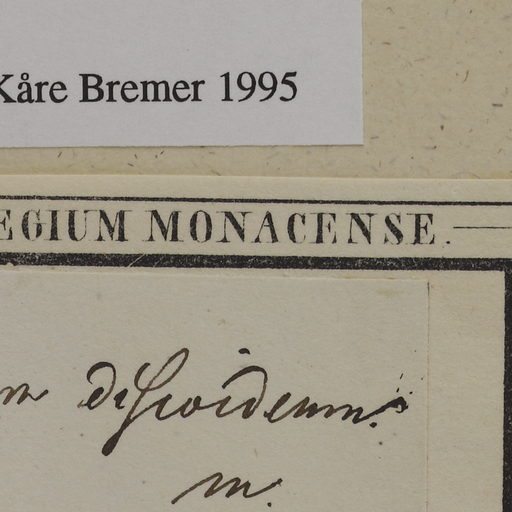 Kåre Bremer 1995
EGIUM MONACENSE.
m discoideum.
m.